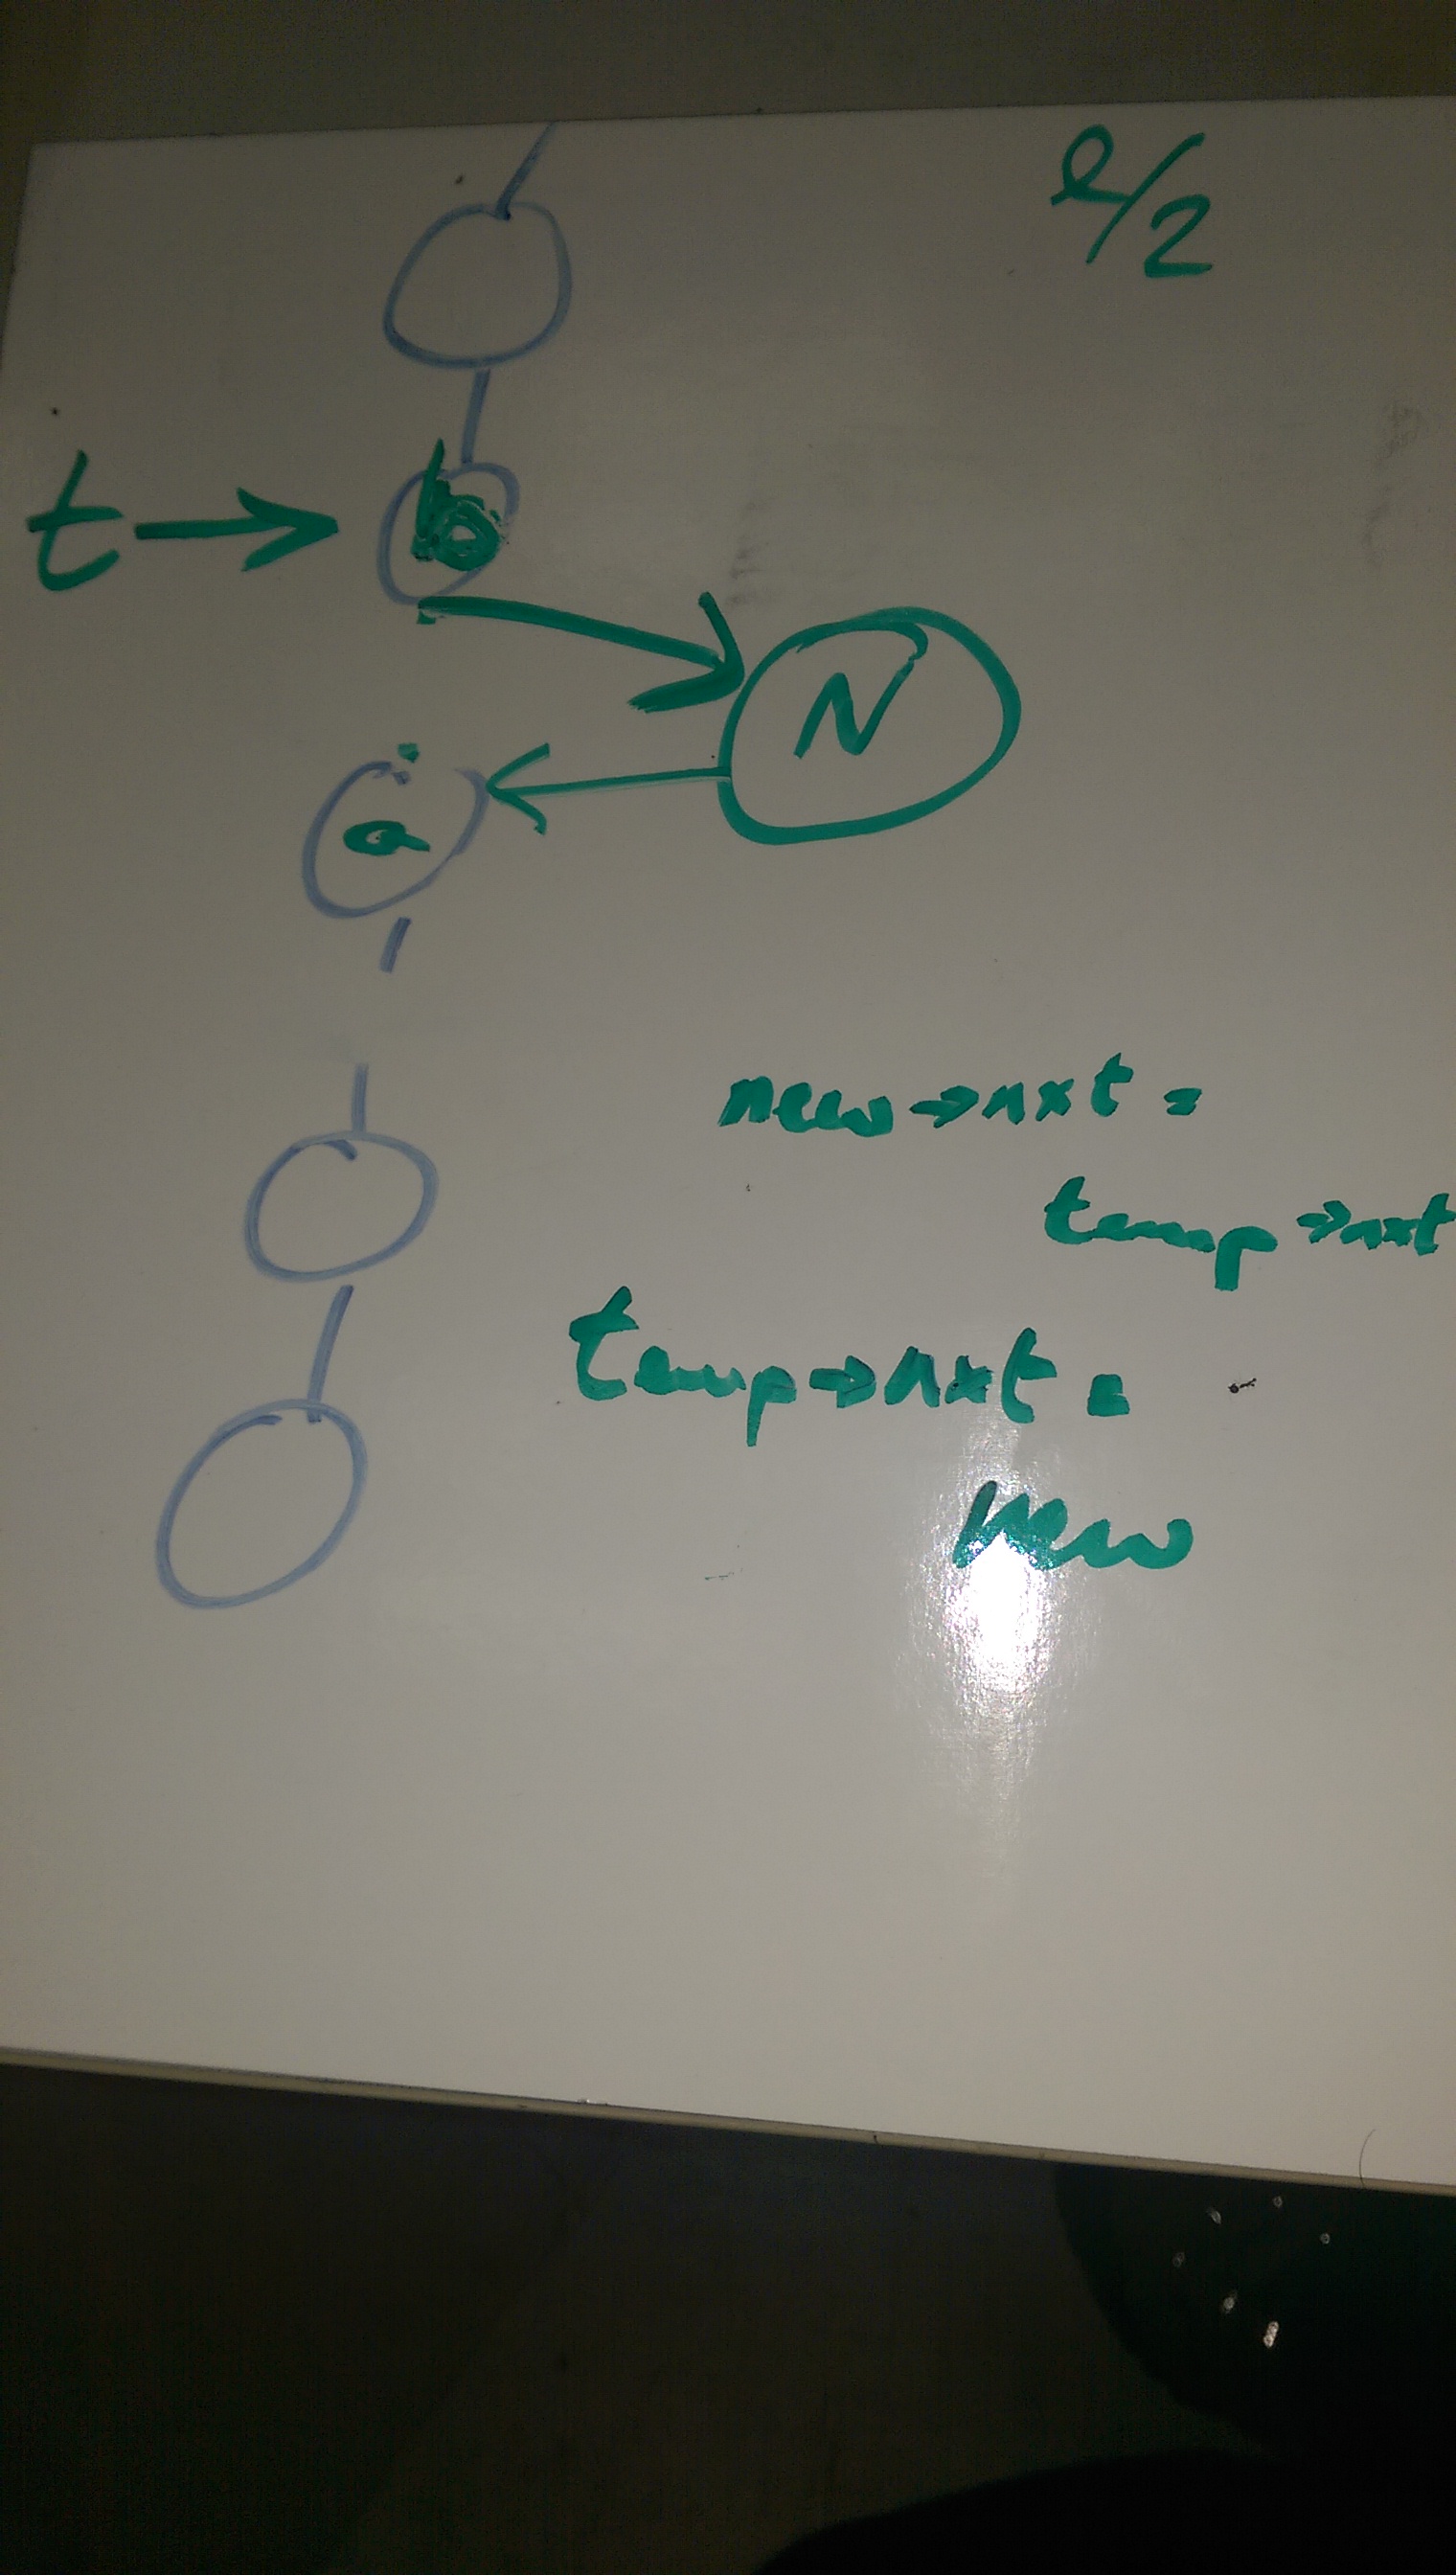 l/2
t →
b
N
a
new→nxt =
temp→nxt
temp→nxt =
new